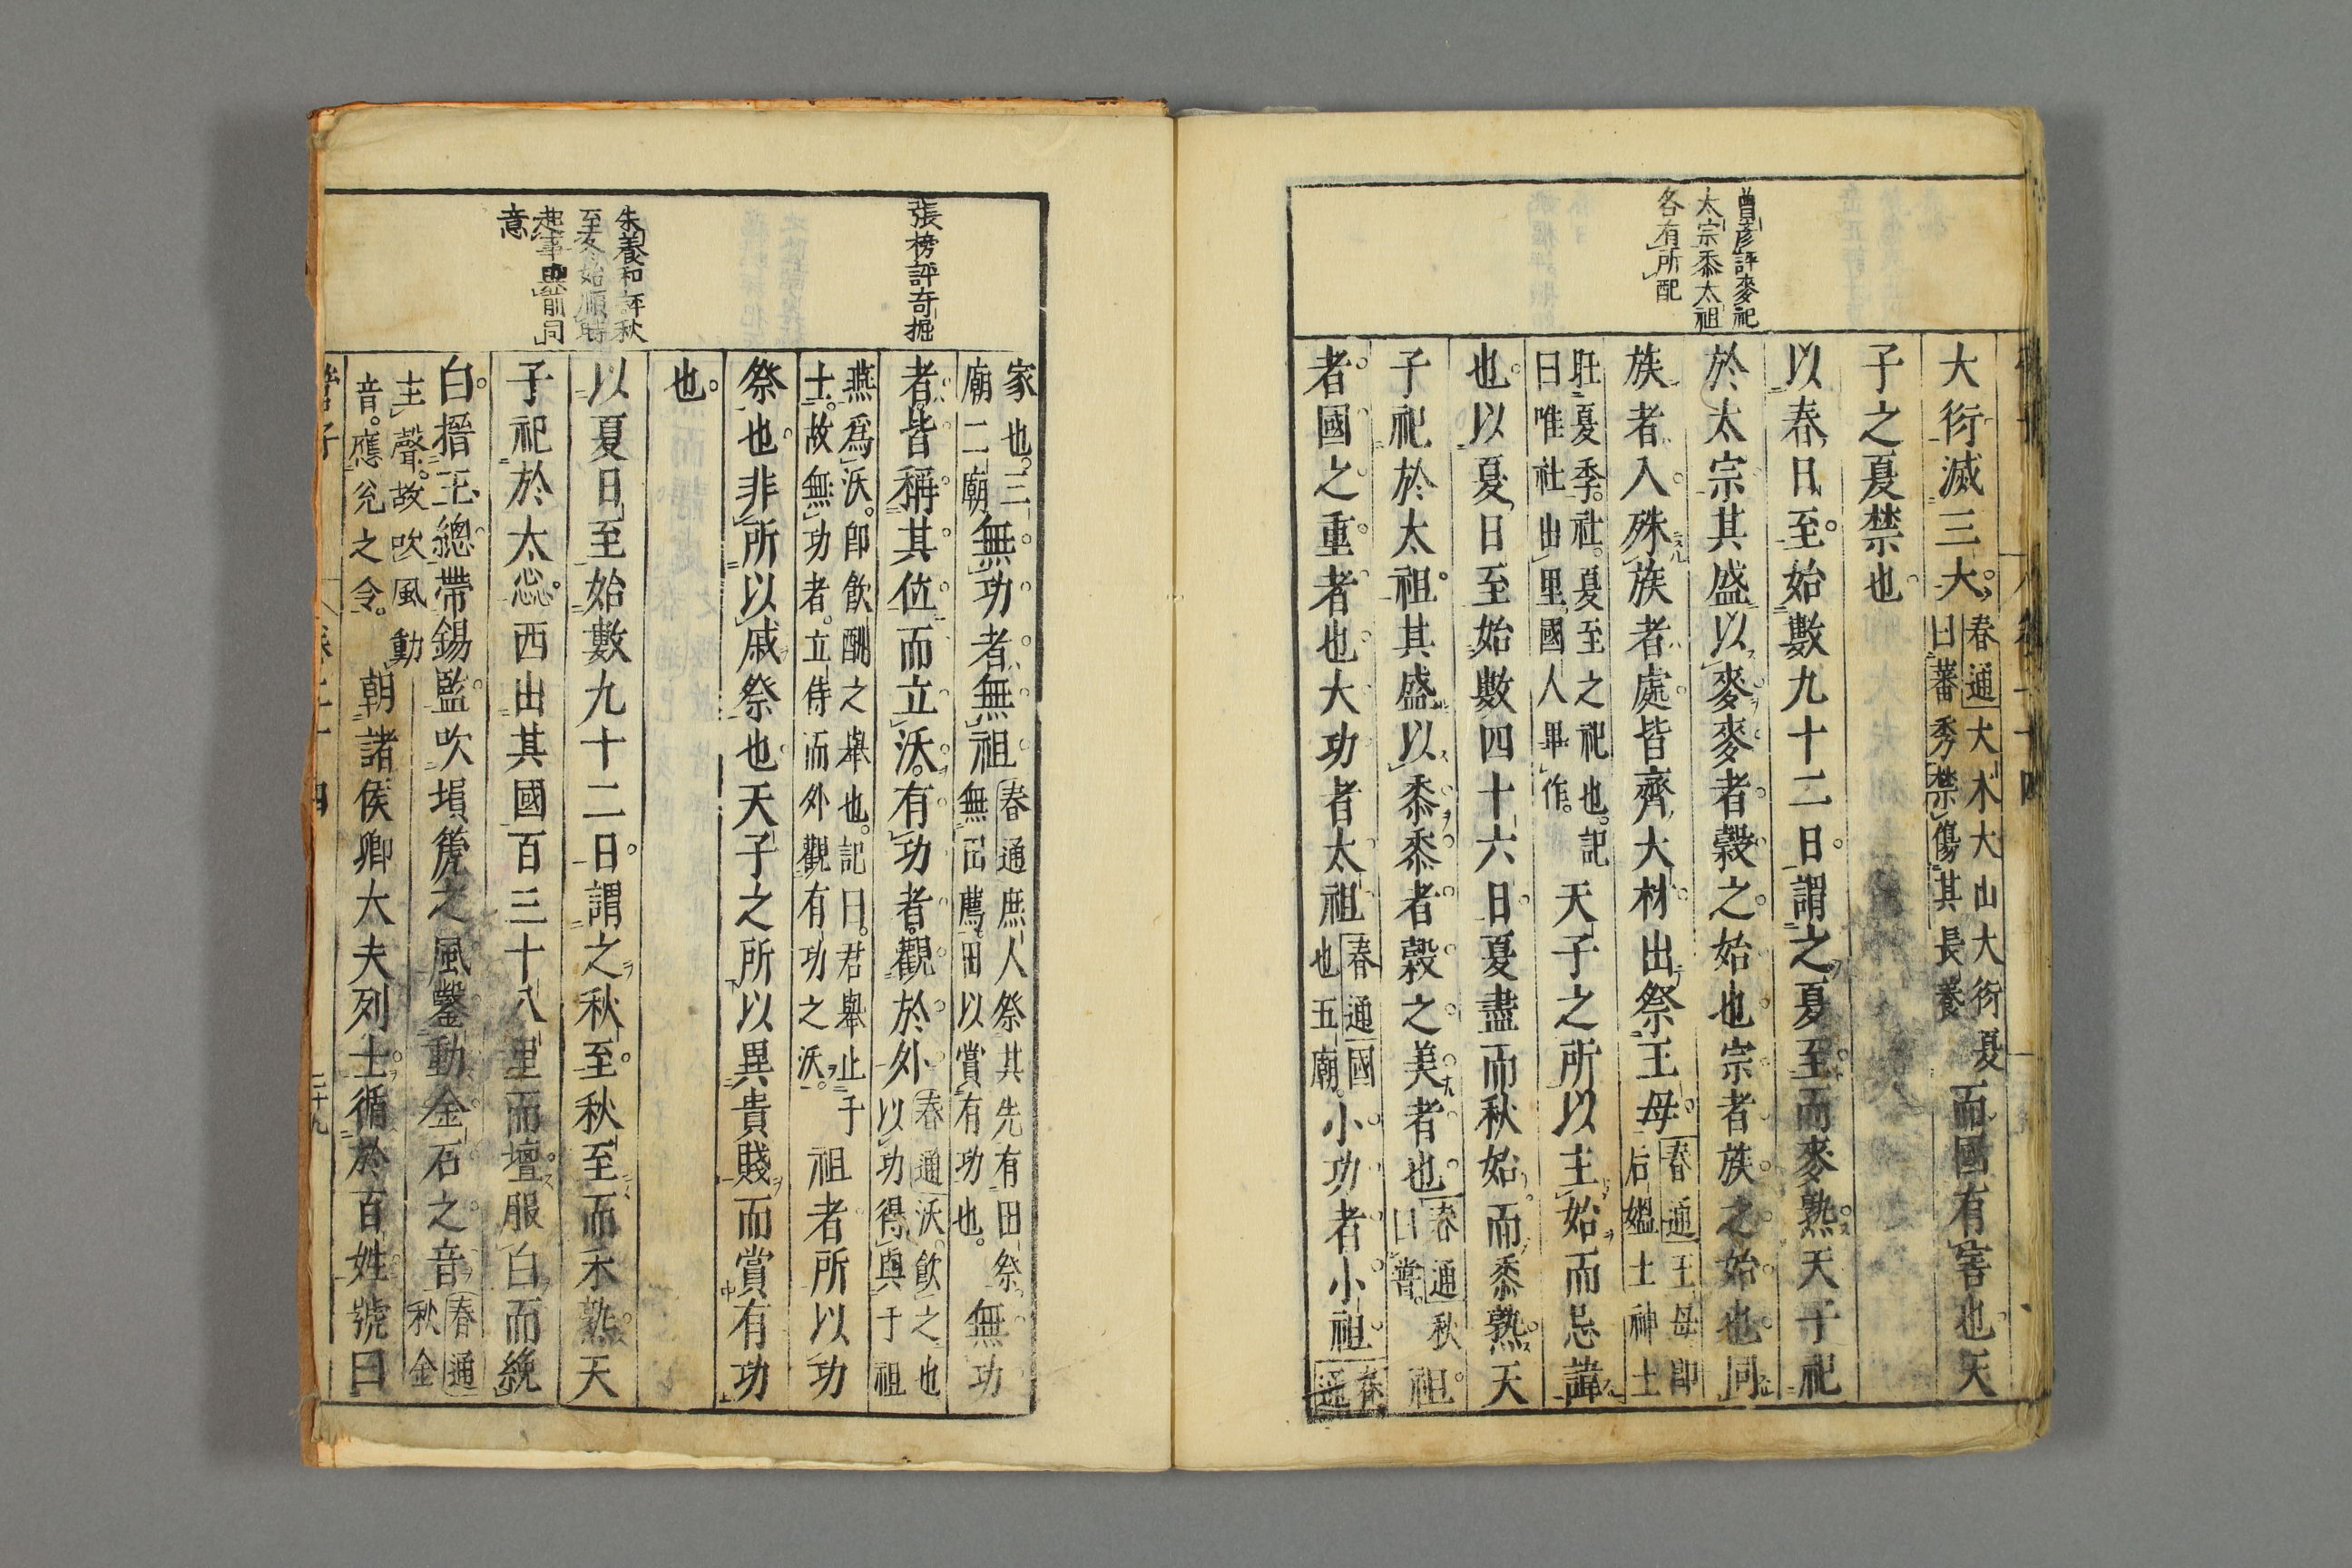 曽彦評麥祀
太宗黍太祖
各有所配
大衍滅三大春通大木大山大衍夏
曰蕃秀禁傷其長養而國有害也天
子之夏禁也
以春日至始數九十二日謂之夏至而麥熟天子祀
於太宗其盛以麥麥者穀之始也宗者族之始也同
族者入殊族者處皆齊大材出祭王母春通王母即
后媼土神土
壯夏季社夏至之祀也記
曰唯社出里國人畢作天子之所以主始而忌諱
也以夏日至始數四十六日夏盡而秋始而黍熟天
子祀於太祖其盛以黍黍者穀之美者也春通秋
曰嘗祖
者國之重者也大功者太祖春通國
也五廟小功者小祖春
通
張榜評奇掘
朱養和評秋
至冬始順時
趣事與前同
意
家也三
廟二廟無功者無祖春通庶人祭其先有田祭
無田薦田以賞有功也無功
者皆稱其位而立沃有功者觀於外春通沃飲之也
以功得與于祖
燕為沃即飲酬之舉也記曰君舉止于
士故無功者立侍而外觀有功之沃祖者所以功
祭也非所以戚祭也天子之所以異貴賤而賞有功
也
以夏日至始數九十二日謂之秋至秋至而禾熟天
子祀於太惢西出其國百三十八里而壇服白而絻
白搢玉總帶錫監吹塤篪之風鑿動金石之音春通
秋金
主聲故吹風動
音應兊之令朝諸侯卿大夫列士循於百姓號曰